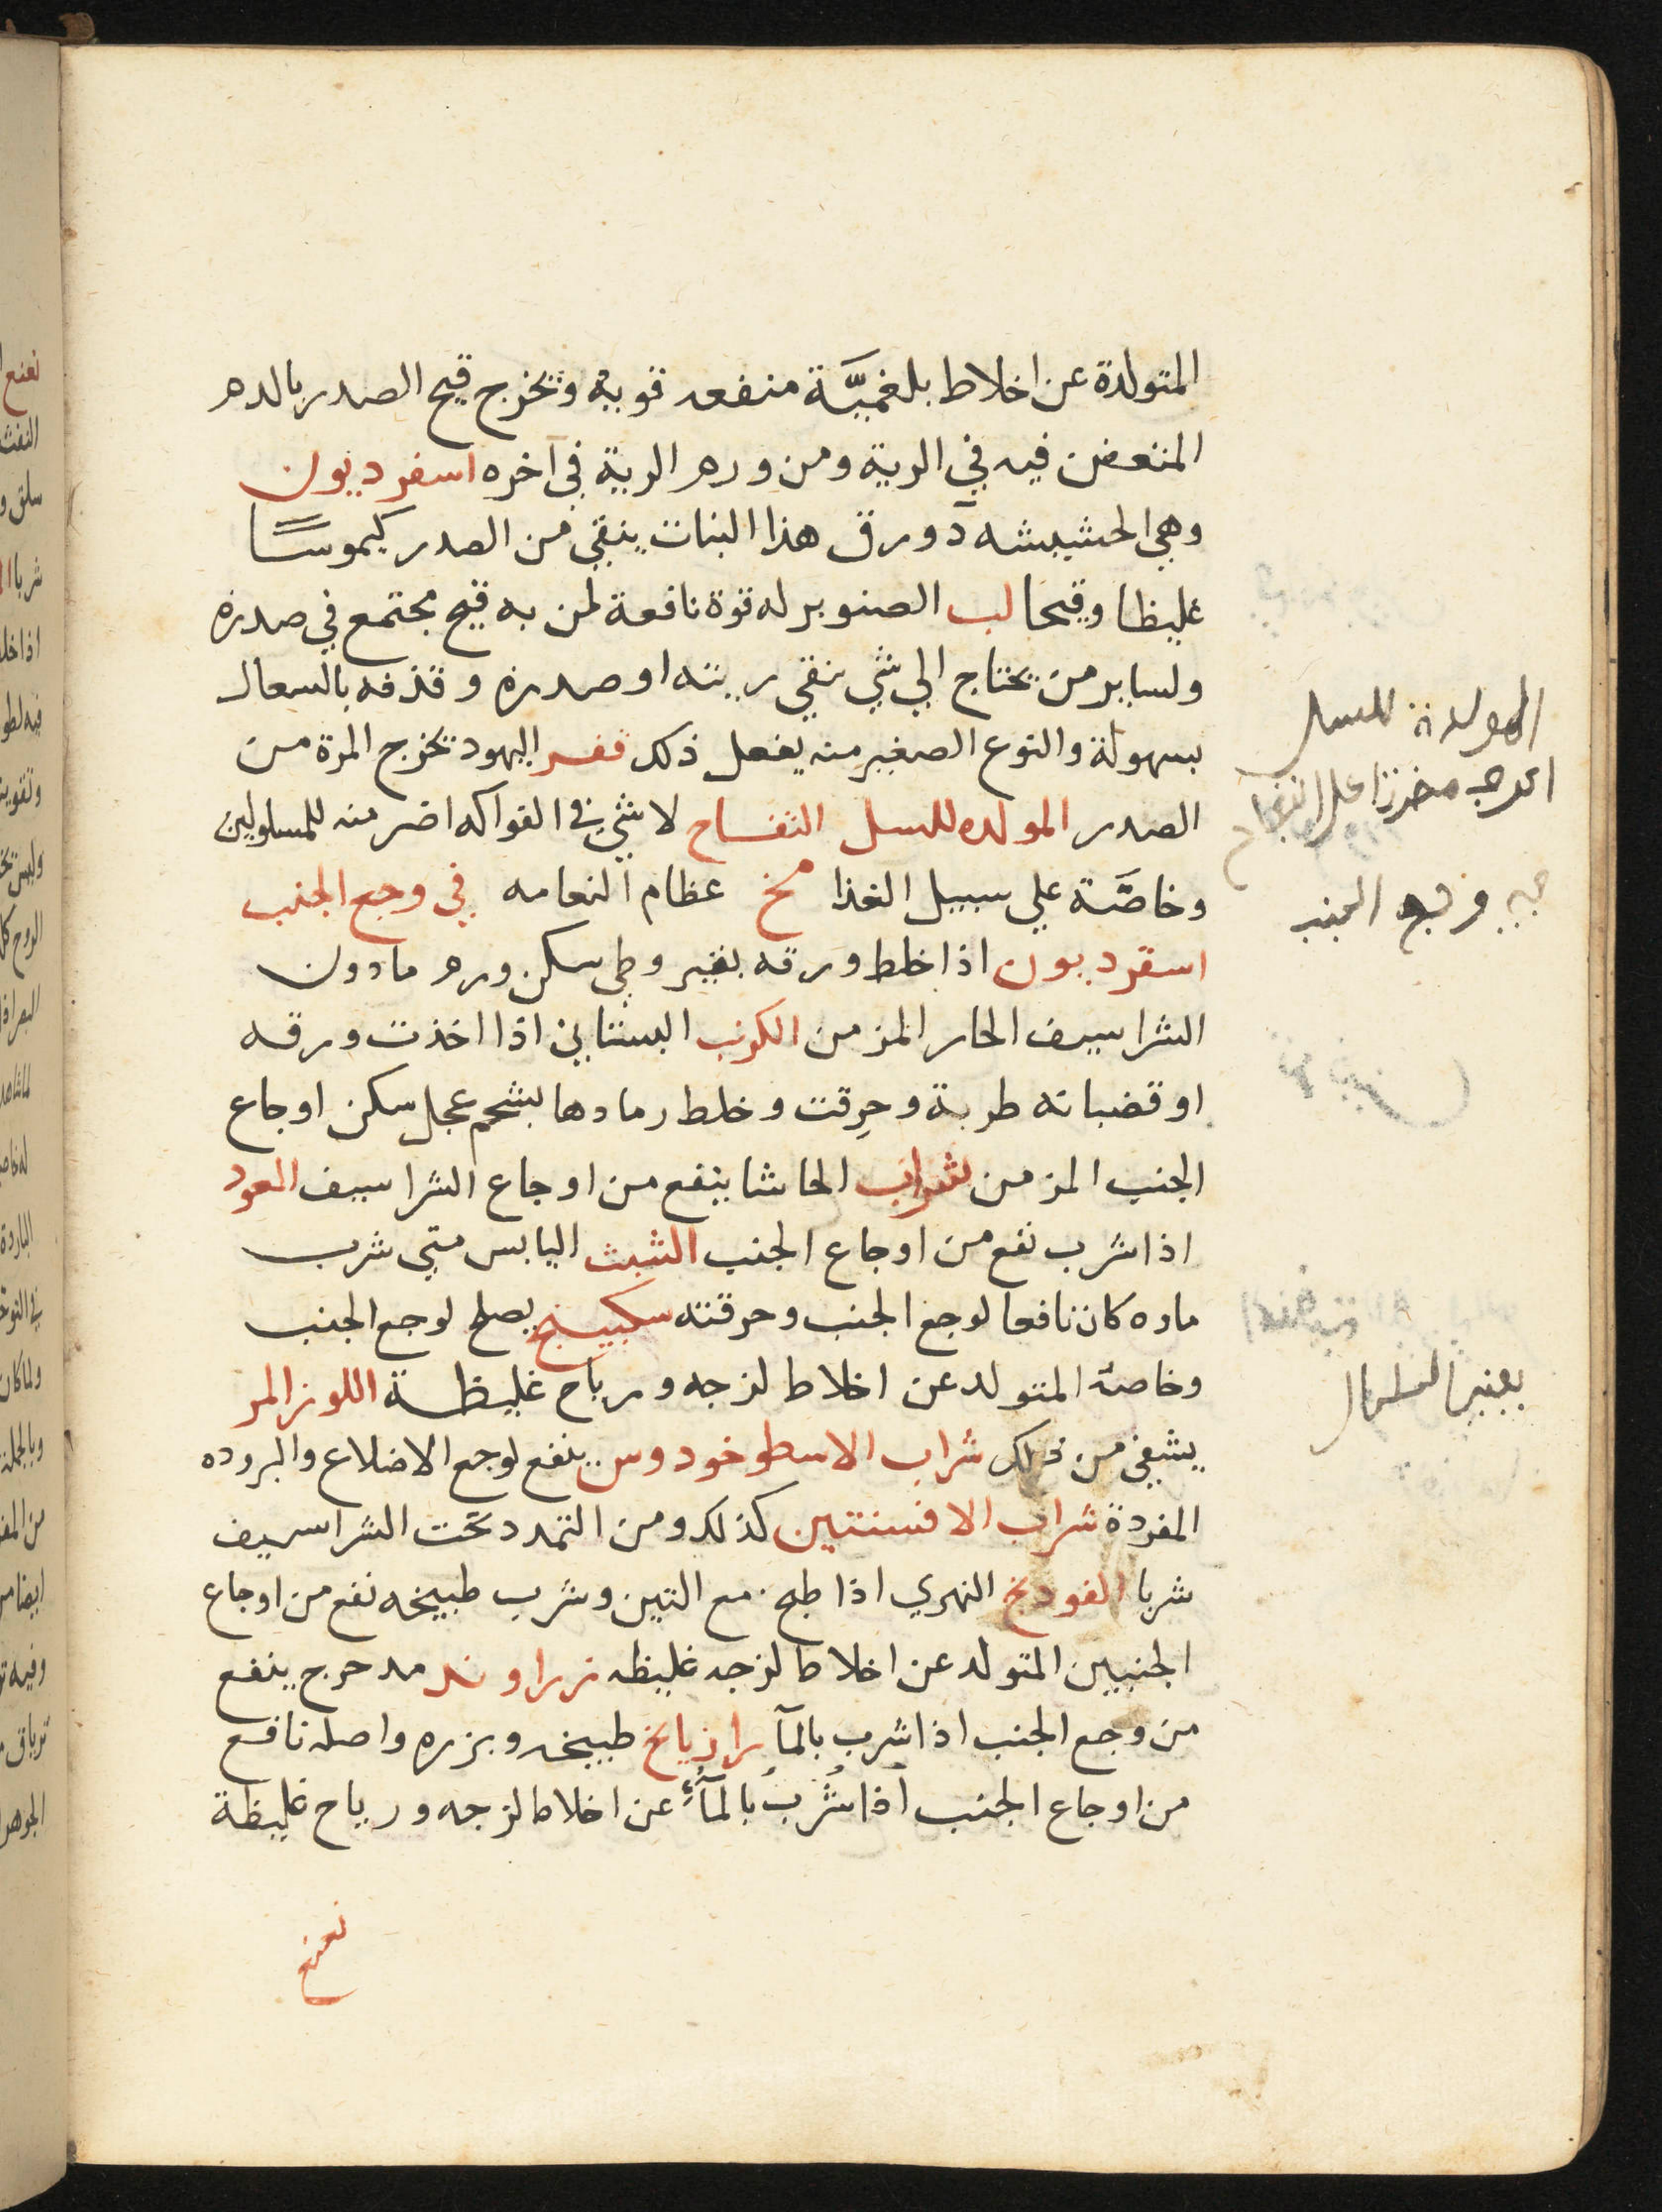 المتولدة عن اخلاط بلغميَّة منفعه قوية وتخرج قيح الصدر بالدم
المتعفن فيه في الرية ومن ورم الرية في آخره اسقرديون
وهي الحشيشه د ورق هذا النبات ينقي من الصدر كيموسًا
غليظا وقيحا لب الصنوبر له قوة نافعة لمن به قيح مجتمع في صدره
ولساير من يحتاج الي شي ينقي ريته او صدره وقذفه بالسعال
بسهولة والنوع الصغير منه يفعل ذلك قفر اليهود تخرج المرة من
الصدر المولده للسل التفاح لا شي في الفواكه اضر منه للمسلولين
وخاصَّة علي سبيل الغذا مخ عظام النعامه في وجع الجنب
اسقرديون اذا خلط ورقه بقيروطي سكن ورم مادون
الشراسيف الحار المزمن الكرنب البستاني اذا اخذت ورقه
او قضبانه طرية وحرقت وخلط رمادها بشحم عجل سكن اوجاع
الجنب المزمن شراب الحاشا ينفع من اوجاع الشراسيف العود
اذا شرب نفع من اوجاع الجنب الشبث اليابس متي شرب
ماوه كان نافعا لوجع الجنب وحرقته سكبينج يصلح لوجع الجنب
وخاصة المتولد عن اخلاط لزجه ورياح غليظة اللوز المر
يشفي من ذلك شراب الاسطوخودوس ينفع لوجع الاضلاع والبروده
المفردة شراب الافسنتين كذلك ومن التمدد تحت الشراسيف
شربا الفودنج النهري اذا طبخ مع التين وشرب طبيخه نفع من اوجاع
الجنبين المتولد عن اخلاط لزجه غليظه زراوند مدحرج ينفع
من وجع الجنب اذا شرب بالمآ رازيانج طبيخه وبزره واصله نافع
من اوجاع الجنب اذا شُرب بالمآءِ عن اخلاط لزجه ورياح غليظة
نعنع
المولدة للسل
وجع الجنب